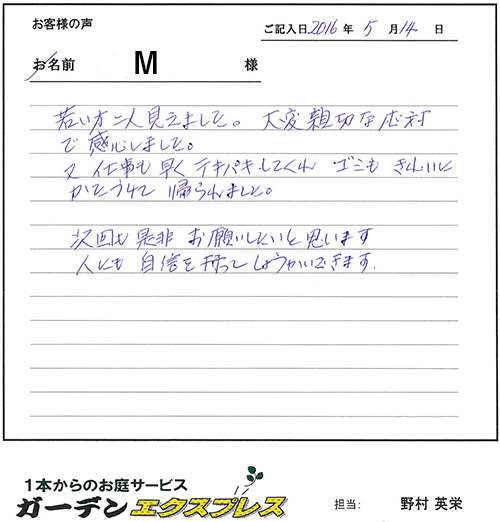 お客様の声
ご記入日2016年 5 月14日
お名前 M 様
若い方二人見えました。大変親切な応対
で感心しました。
又仕事も早くテキパキしてくれ ゴミも きれいに
かたづけて 帰られました。
次回も是非お願いしたいと思います
人にも自信を持ってしょうかいできます.
1本からのお庭サービス
ガーデンエクスプレス
担当: 野村 英栄